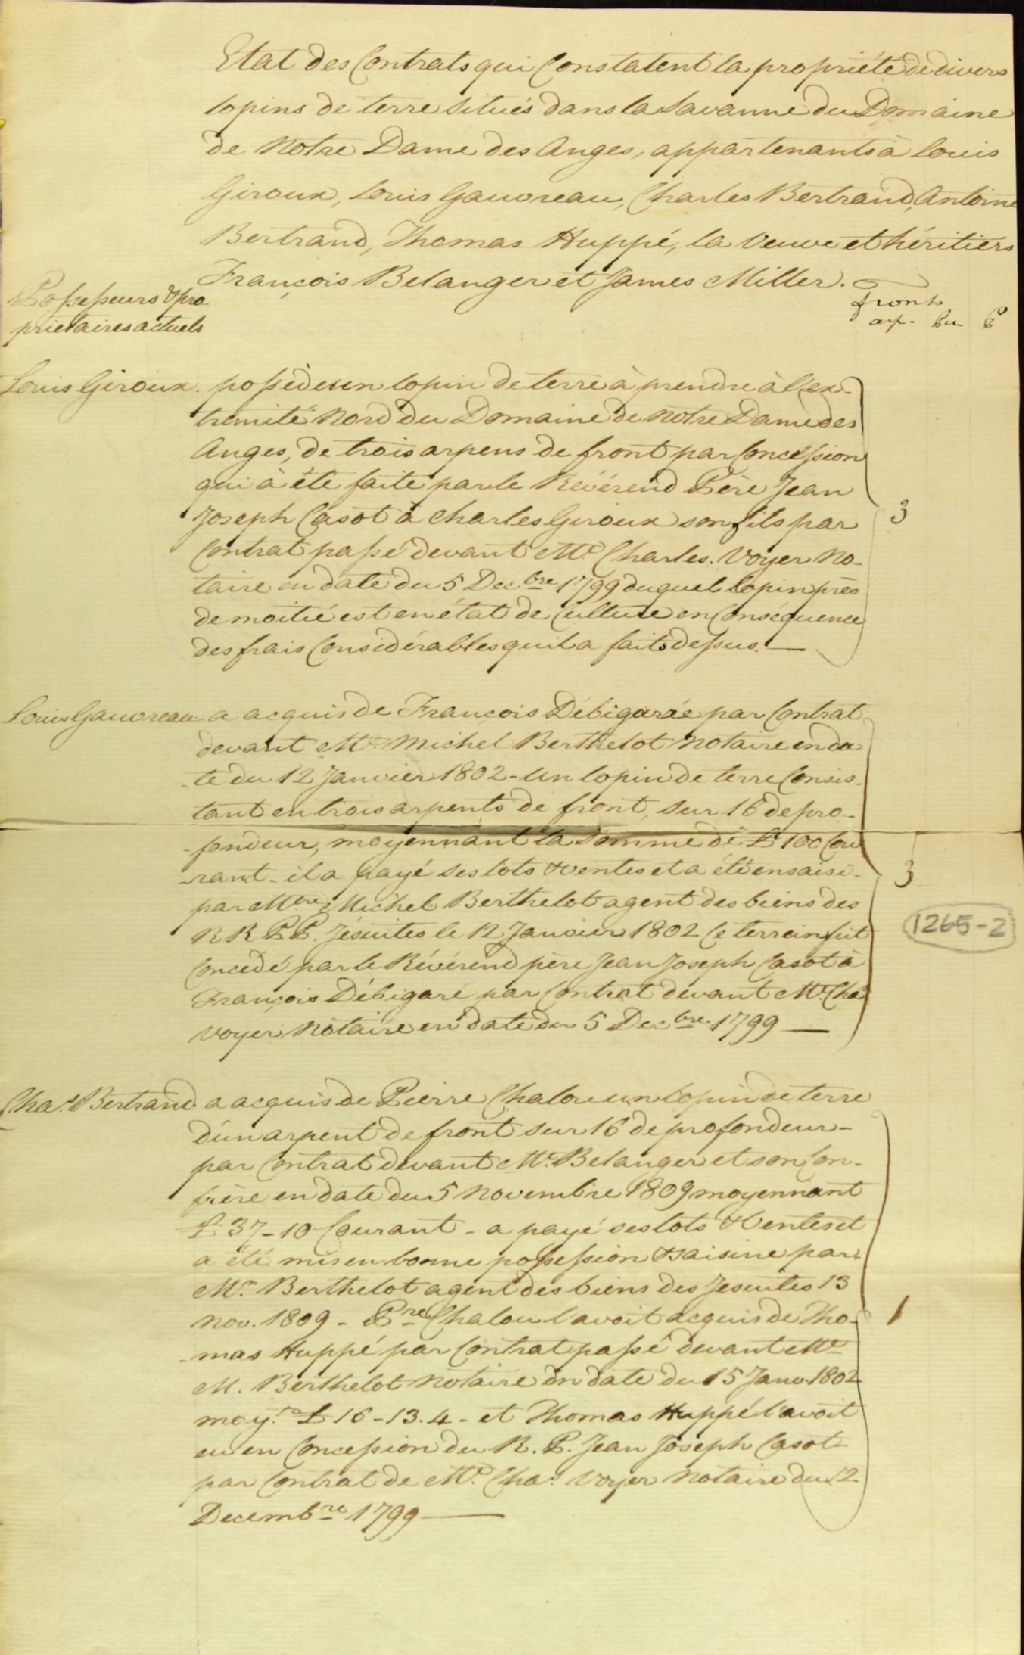 Etat des Contrats qui Constatent la propriété de divers
lopins de terre situés dans la Savanne du Domaine
de Notre Dame des Anges, appartenants à Louis
Giroux, Louis Gauvreau, Charles Bertrand, Antoine
Bertrand, Thomas Huppé, la Veuve et héritiers
François Belanger et James Miller.
Possesseurs & pro
priétaires actuels
front
arp. P
Louis Giroux. possède un lopin de terre à prendre à l'ex-
tremité Nord du Domaine de Notre Dame des
Anges, de trois arpens de front par Concession
qui à été faite par le Révérend Père Jean
Joseph Casot à Charles Giroux son fils par
3
Contrat passé devant Mtre Charles Voyer No-
taire en date du 5 Decbre 1799 duquel lopin près
de moitié est en état de Culture en Conséquence
des frais Considérables qu'il a faits dessus. —
Louis Gauvreau a acquis de François Débigaré par Contrat
devant Mtre Michel Berthelot Notaire en da
-te du 12 Janvier 1802 - Un lopin de terre Consis-
tant en trois arpents de front, sur 16 de pro-
-fondeur, moyennant la Somme de £100 Cou
-rant - il a payé ses lots & ventes et a été ensaisi-
3
par Mtre Michel Berthelot agent des biens des
RR. PP. Jésuites le 12 Janvier 1802 Ce terrein fut
1265-2
Concédé par le Révérend père Jean Joseph Casot à
François Débigaré par Contrat devant Mr. Chas
Voyer Notaire en date du 5 Decbre 1799 —
Chas. Bertrand a acquis de Pierre Chalou un lopin de terre
d'un arpent de front sur 16 de profondeur-
par Contrat devant Mr. Belanger et son Con-
frère en date du 5 Novembre 1809 moyennant
£37-10 Courant - a payé ses lots & Ventes et
a été mis en bonne possession & saisine par
Mr. Berthelot agent des biens des Jesuites 13
Nov. 1809 - Pre Chalou l'avoit acquis de Tho-
1
-mas Huppé par Contrat passé devant Mtre
M. Berthelot Notaire en date du 15 Janv. 1802
moyt. £16-13.4 - et Thomas Huppé l'avoit
eu en Concession du R. P. Jean Joseph Casot
par Contrat de Mr. Chas. Voyer Notaire du 12
Decembre 1799 —